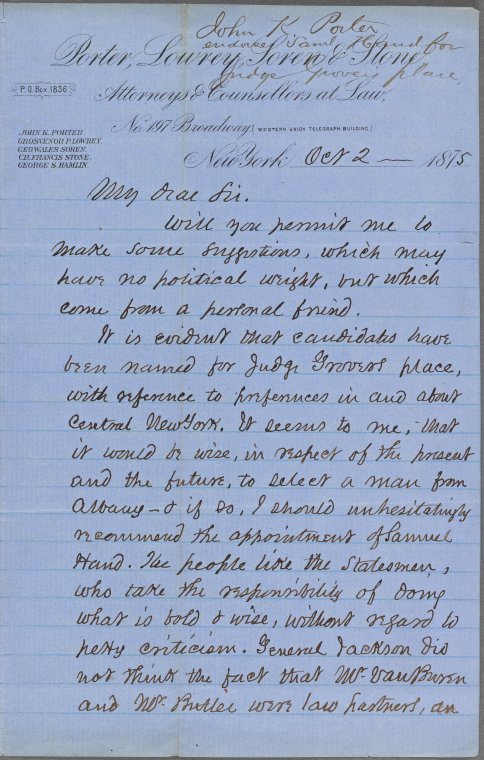 John K Porter
endorses Saml Hand for
Judge Grover's place,
Porter, Lowrey, Soren & Stone
Attorneys & Counsellors at Law,
P.O. Box 1836
No. 197 Broadway (WESTERN UNION TELEGRAPH BUILDING)
JOHN K. PORTER.
GROSVENOR P. LOWREY.
GEO. WALES SOREN.
CH. FRANCIS STONE.
GEORGE S. HAMLIN.
New York Oct 2 — 1875
My dear Sir.
Will you permit me to
make some suggestions, which may
have no political weight, but which
come from a personal friend.
It is evident that candidates have
been named for Judge Grovers place,
with reference to preferences in and about
Central New York. It seems to me, that
it would be wise, in respect of the present
and the future, to select a man from
Albany - & if so, I should unhesitatingly
recommend the appointment of Samuel
Hand. The people like the Statesmen,
who take the responsibility of doing
what is bold & wise, without regard to
petty criticism. General Jackson did
not think the fact that Mr. Van Buren
and Mr. Butler were law partners, an